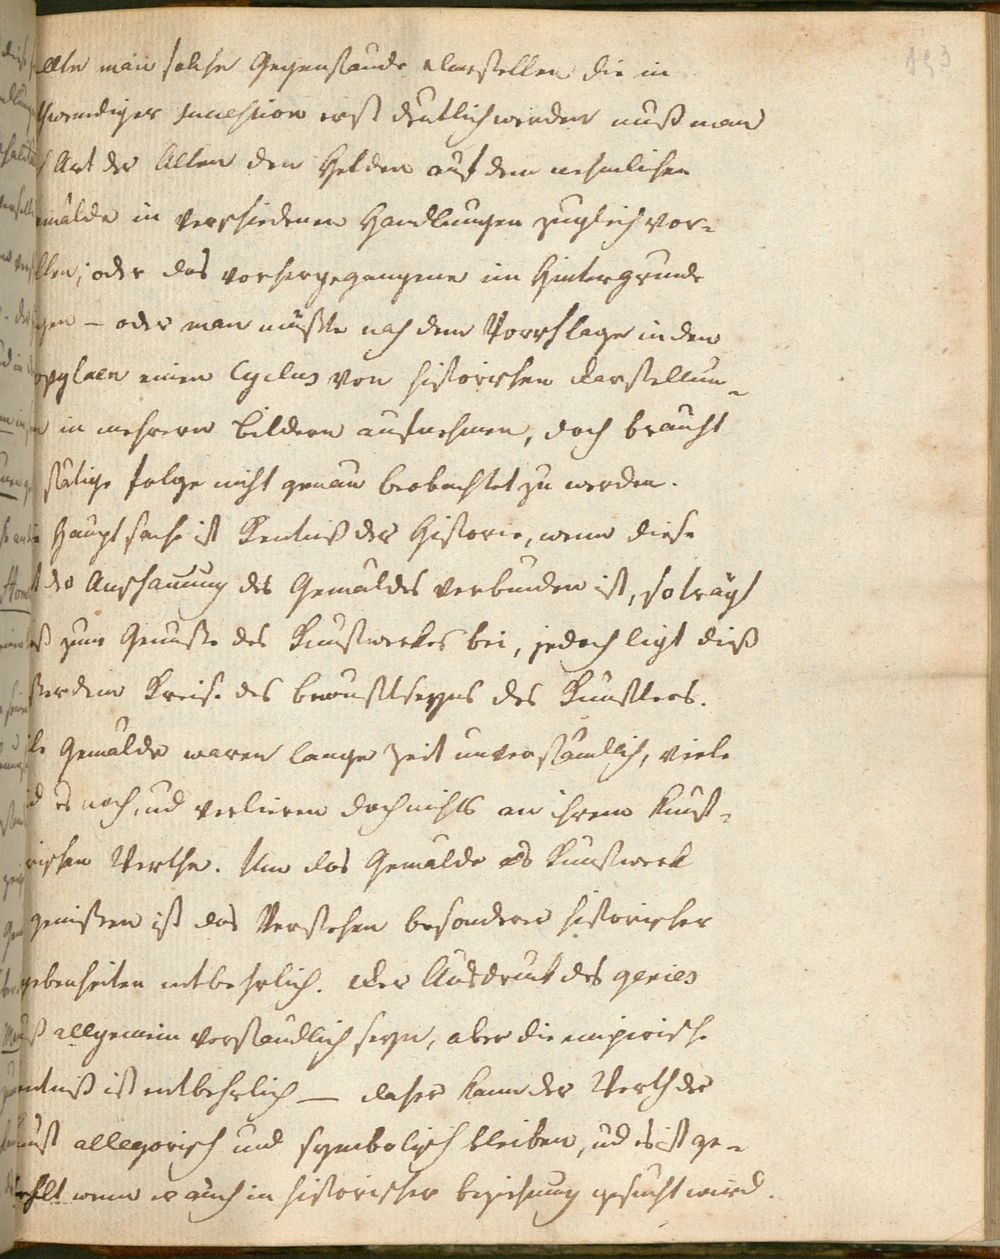 193
ollte man solche Gegenstände darstellen die in
thwendiger succession erst deutlich werden muß man
h Art der Alten den Helden auf dem nehmlichen
mälde in verschiedenen Handlungen zugleich vor-
llen; oder das vorhergegangene im Hintergrunde
gen — oder man müßte nach dem Vorschlage in den
opylaen einen Cyclus von historischen darstellun-
n in mehrern bildern aufnehmen, doch braucht
stätige folge nicht genau beobachtet zu werden.
Hauptsache ist Kentniß der Historie, wenn diese
t der Anschauung des Gemäldes verbunden ist, so trägt
ß zum Genusse des Kunstwerkes bei, jedoch ligt dieß
ßer dem Kreise des bewustseyns des Künstlers.
ele Gemälde waren lange Zeit unverständlich, viele
d es noch, ud verlieren doch nichts an ihrem Kunst-
rischen Werthe. Um das Gemälde als Kunstwerk
genießen ist das Verstehen besonderer historischer
gebenheiten entbehrlich. der Ausdruck des genies
uß allgemein verständlich seyn, aber die empirische
entniß ist entbehrlich — daher kann der Werth der
unst allegorisch und symbolisch bleiben, ud es ist ge-
ehlt wenn er auch in historischer beziehung gesucht wird.